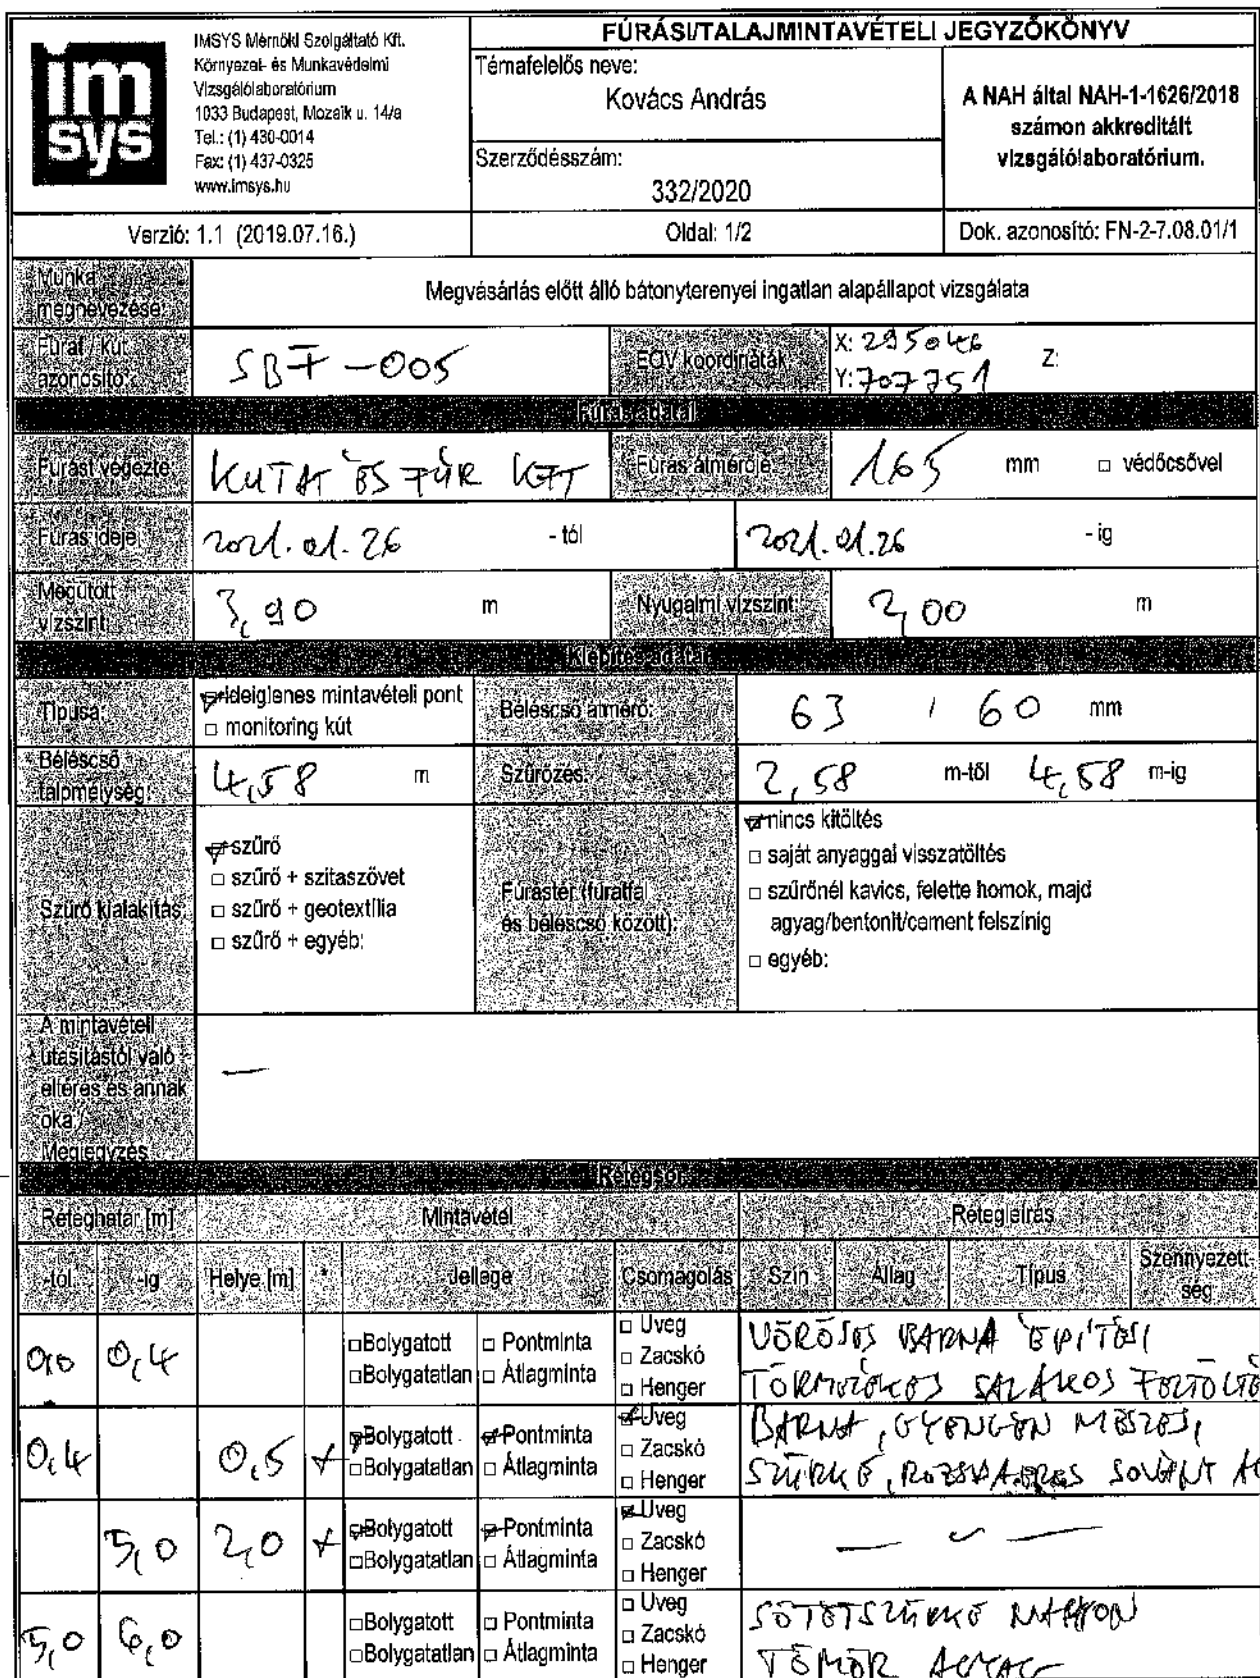 im
sys
IMSYS Mérnöki Szolgáltató Kft.
Környezet- és Munkavédelmi
Vizsgálólaboratórium
1033 Budapest, Mozaik u. 14/a
Tel.: (1) 430-0014
Fax: (1) 437-0325
www.imsys.hu
FÚRÁSI/TALAJMINTAVÉTELI JEGYZŐKÖNYV
Témafelelős neve:
Kovács András
Szerződésszám:
332/2020
A NAH által NAH-1-1626/2018
számon akkreditált
vizsgálólaboratórium.
Verzió: 1.1 (2019.07.16.)
Oldal: 1/2
Dok. azonosító: FN-2-7.08.01/1
Munka megnevezése:
Megvásárlás előtt álló bátonyterenyei ingatlan alapállapot vizsgálata
Furat / kút azonosító:
SBF-005
EOV koordináták
X: 295046
Y: 707751
Z:
Fúrás adatai
Fúrást végezte:
KUTAT ÉS FÚR KFT
Fúrás átmérője:
165 mm □ védőcsővel
Fúrás ideje:
2021.01.26 - tól
2021.01.26 - ig
Megütött vízszint:
3,90 m
Nyugalmi vízszint:
2,00 m
Kiépítés adatai
Típusa:
ideiglenes mintavételi pont
□ monitoring kút
Béléscső átmérő:
63 / 60 mm
Béléscső talpmélység:
4,58 m
Szűrőzés:
2,58 m-től 4,58 m-ig
Szűrő kialakítás:
szűrő
□ szűrő + szitaszövet
□ szűrő + geotextília
□ szűrő + egyéb:
Fúrástér (furatfal és béléscső között):
nincs kitöltés
□ saját anyaggal visszatöltés
□ szűrőnél kavics, felette homok, majd
agyag/bentonit/cement felszínig
□ egyéb:
A mintavételi
utasítástól való
eltérés és annak
oka /
Megjegyzés
—
Rétegsor
Réteghatár [m] Mintavétel Rétegleírás
-tól -ig Helye [m] * Jellege Csomagolás Szín Állag Típus Szennyezettség
0,0 0,4 □Bolygatott □ Pontminta □ Üveg
□Bolygatatlan □ Átlagminta □ Zacskó
□ Henger
VÖRÖSES BARNA ÉPÍTÉSI
TÖRMELÉKES SALAKOS
0,4 0,5 + Bolygatott Pontminta Üveg
□Bolygatatlan □ Átlagminta □ Zacskó
□ Henger
BARNA, GYENGÉN MESZES,
SZÜRKE, ROZSDAERES SOVÁNY
5,0 2,0 + Bolygatott Pontminta Üveg
□Bolygatatlan □ Átlagminta □ Zacskó
□ Henger
5,0 6,0 □Bolygatott □ Pontminta □ Üveg
□Bolygatatlan □ Átlagminta □ Zacskó
□ Henger
SÖTÉTSZÜRKE NAGYON
TÖMÖR AGYAG